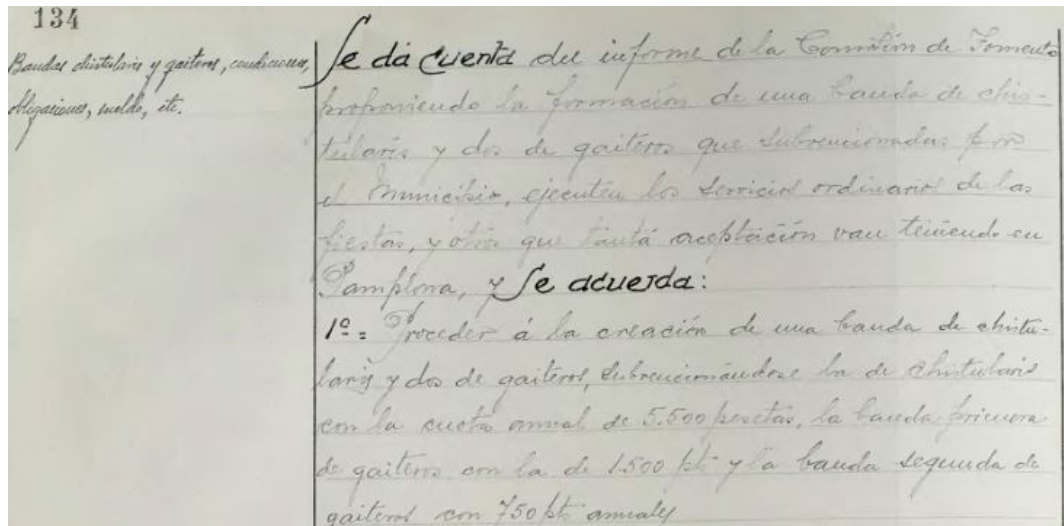 134
Bandas chistularis y gaiteros, condiciones,
obligaciones, sueldo, etc.
Se dá cuenta del informe de la Comisión de Fomento
proponiendo la formación de una banda de chis-
tularis y dos de gaiteros que subvencionadas por
el Municipio, ejecuten los servicios ordinarios de las
fiestas, y otros que tanta aceptación van teniendo en
Pamplona, y Se acuerda:
1º = Proceder á la creación de una banda de chistu-
laris y dos de gaiteros, subvencionándose la de chistularis
con la cuota anual de 5.500 pesetas, la banda primera
de gaiteros con la de 1.500 pts y la banda segunda de
gaiteros con 750 pts anuales